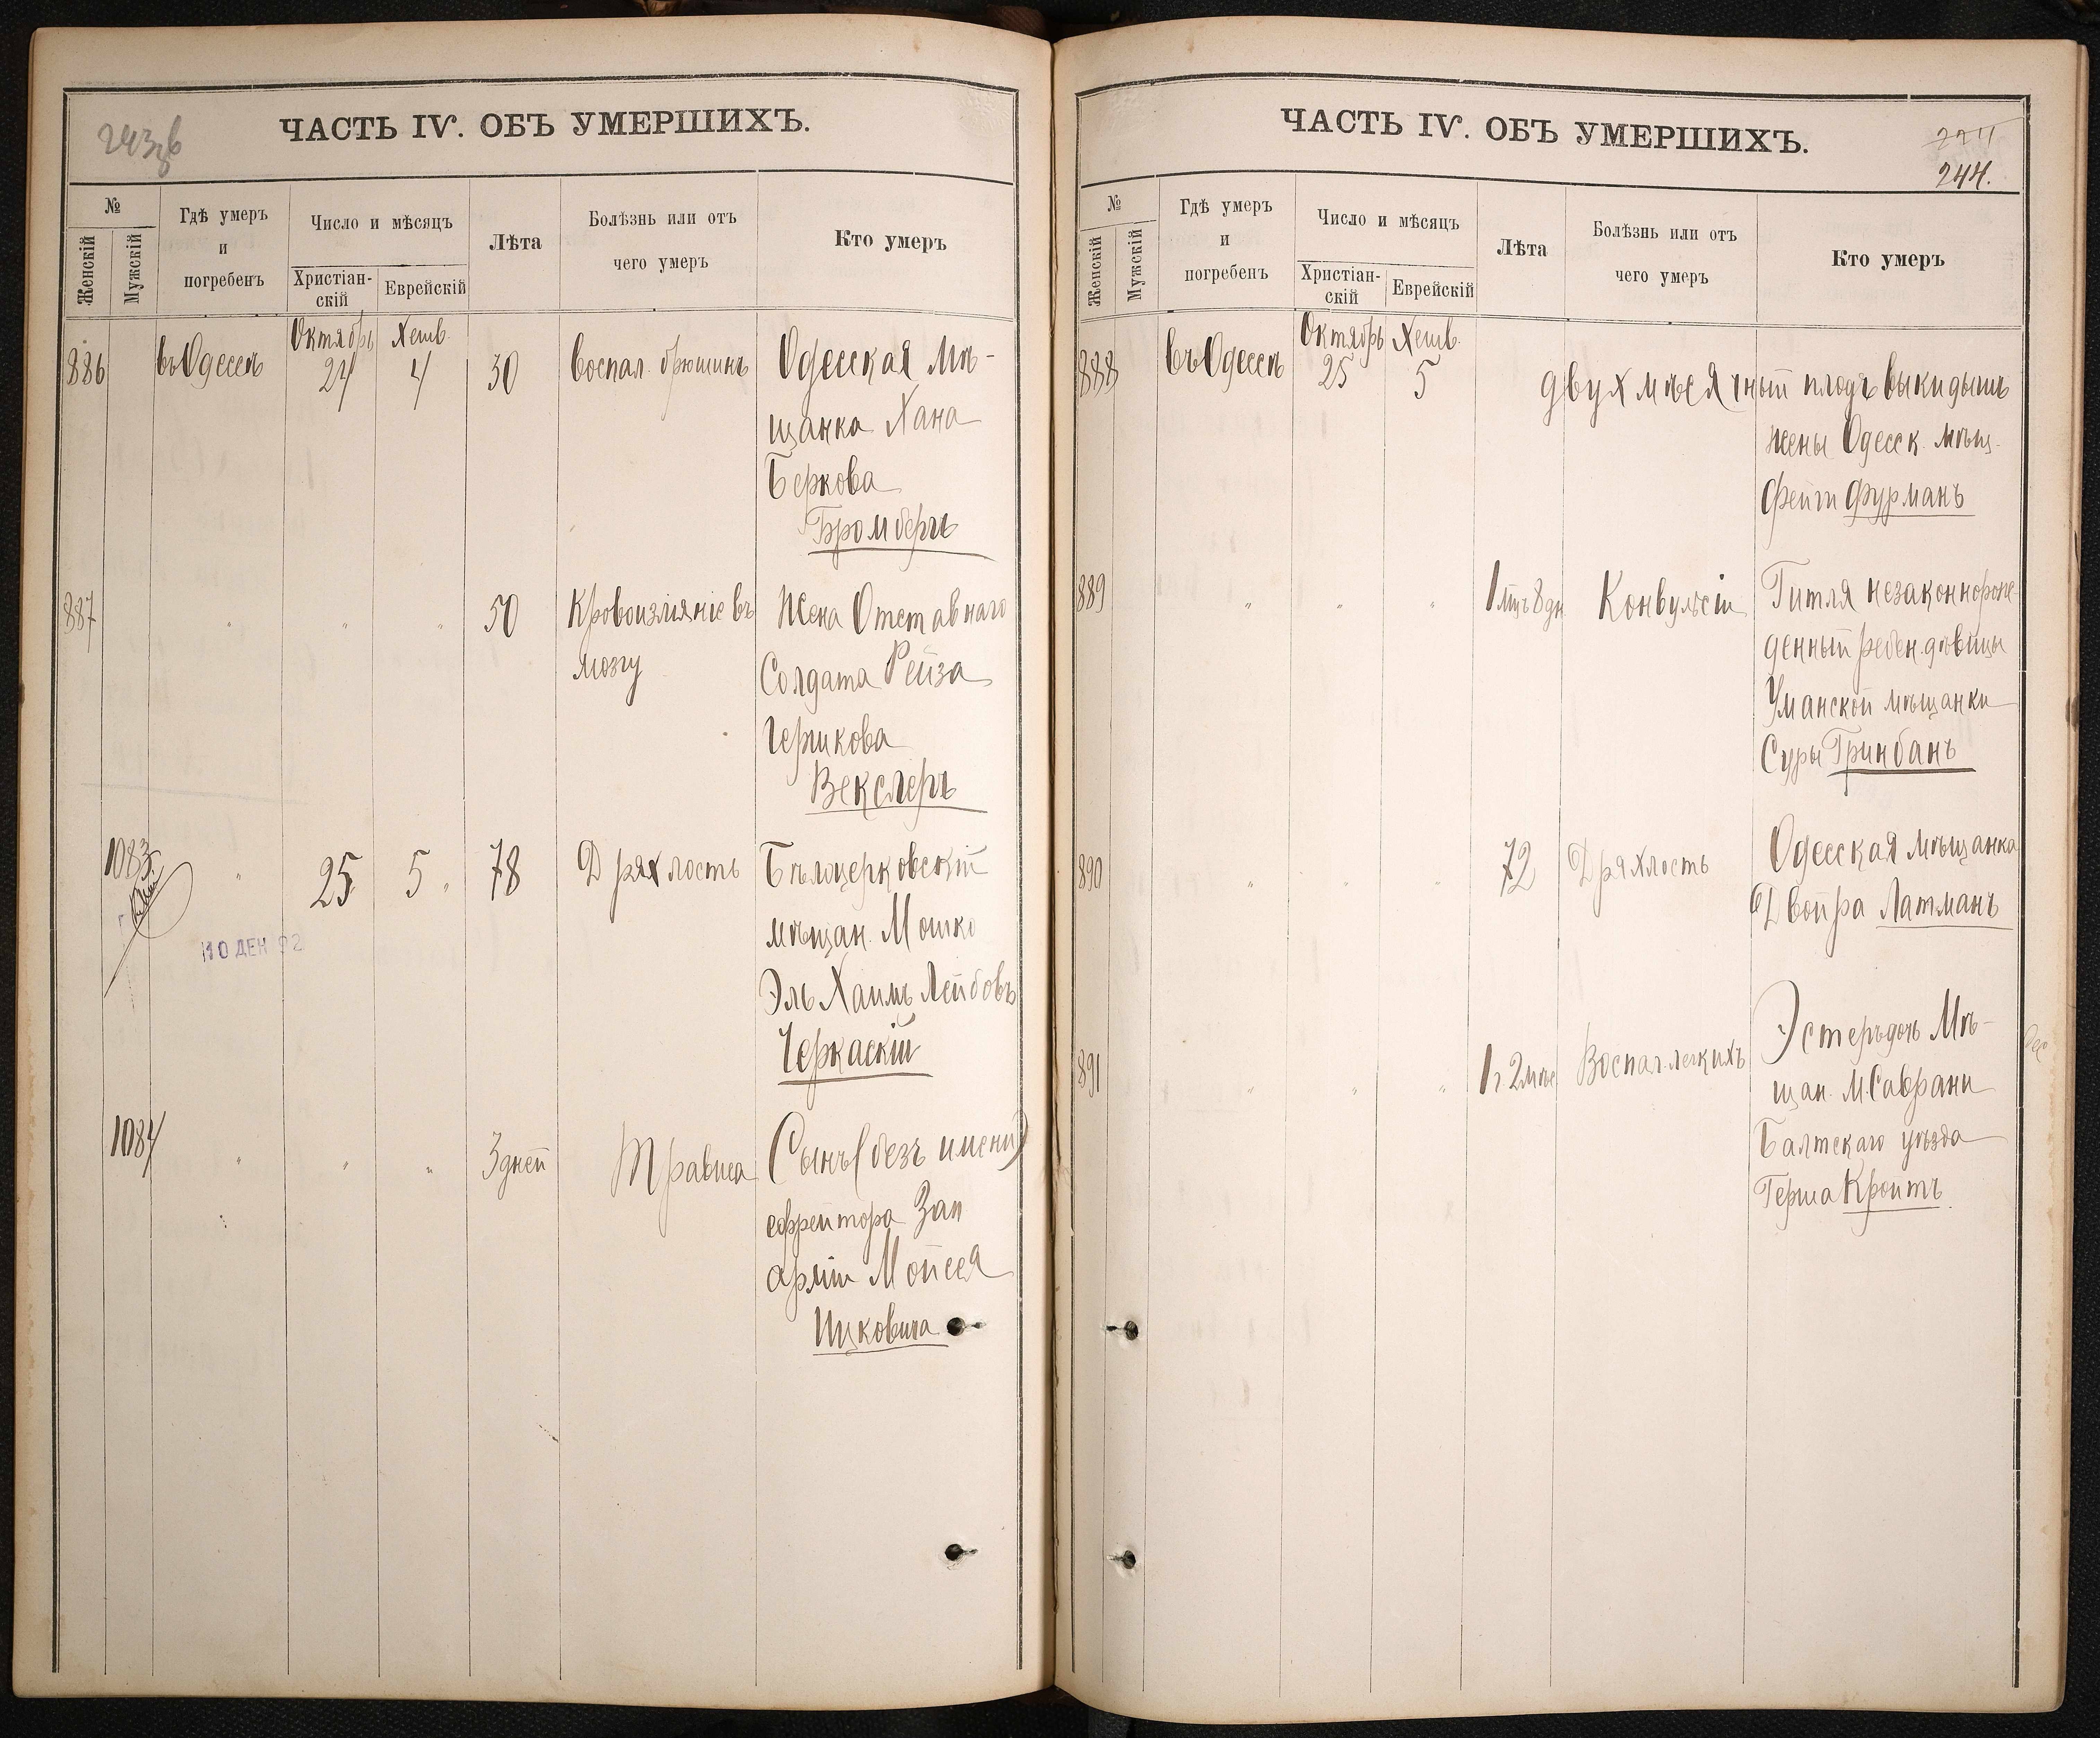 243 об
ЧАСТЬ IV. ОБЪ УМЕРШИХЪ.
№
Женскій
Мужскій
Гдѣ умеръ
и
погребенъ
Число и мѣсяцъ
Христіан-
скій
Еврейскій
Лѣта
Болѣзнь или отъ
чего умеръ
Кто умеръ
Октябрь Хешв.
886 въ Одессѣ 24 4 30 Воспал. брюшины Одесская Мѣ-
щанка Хана
Беркова
Бромбергъ
887 " " " 50 Кровоизліяніе въ Жена Отставнаго
мозгу Солдата Рейза
Гершкова
Векслеръ
1083 " 25 5 " 78 Дряхлость Бѣлоцерковскій
мѣщан. Мошко
Эль Хаимъ Лейбовъ
Черкаскій
10 ДЕН 92
1084 " " " 3 дней Сынъ (безъ имени)
ефрейтора Зап
арміи Мойсея
Ицковича
ЧАСТЬ IV. ОБЪ УМЕРШИХЪ.
244.
№
Женскій
Мужскій
Гдѣ умеръ
и
погребенъ
Число и мѣсяцъ
Христіан-
скій
Еврейскій
Лѣта
Болѣзнь или отъ
чего умеръ
Кто умеръ
Октябрь Хешв.
888 въ Одессѣ 25 5 двухмѣсячный плодъ выкидышъ
жены Одесск. мѣщ.
Фейги Фурманъ
889 " " " 1 мць 8 дн Конвульсіи Гитля незаконнорож-
денный ребен. дѣвицы
Уманской мѣщанки
Суры Гринбанъ
890 " " " 72 Дряхлость Одесская мѣщанка
Двойра Латманъ
891 " " " 1 г. 2 мѣс Воспал. легкихъ Эстеръ дочь Мѣ-
щан. М. Саврани
Балтскаго уѣзда
Герша Кройтъ